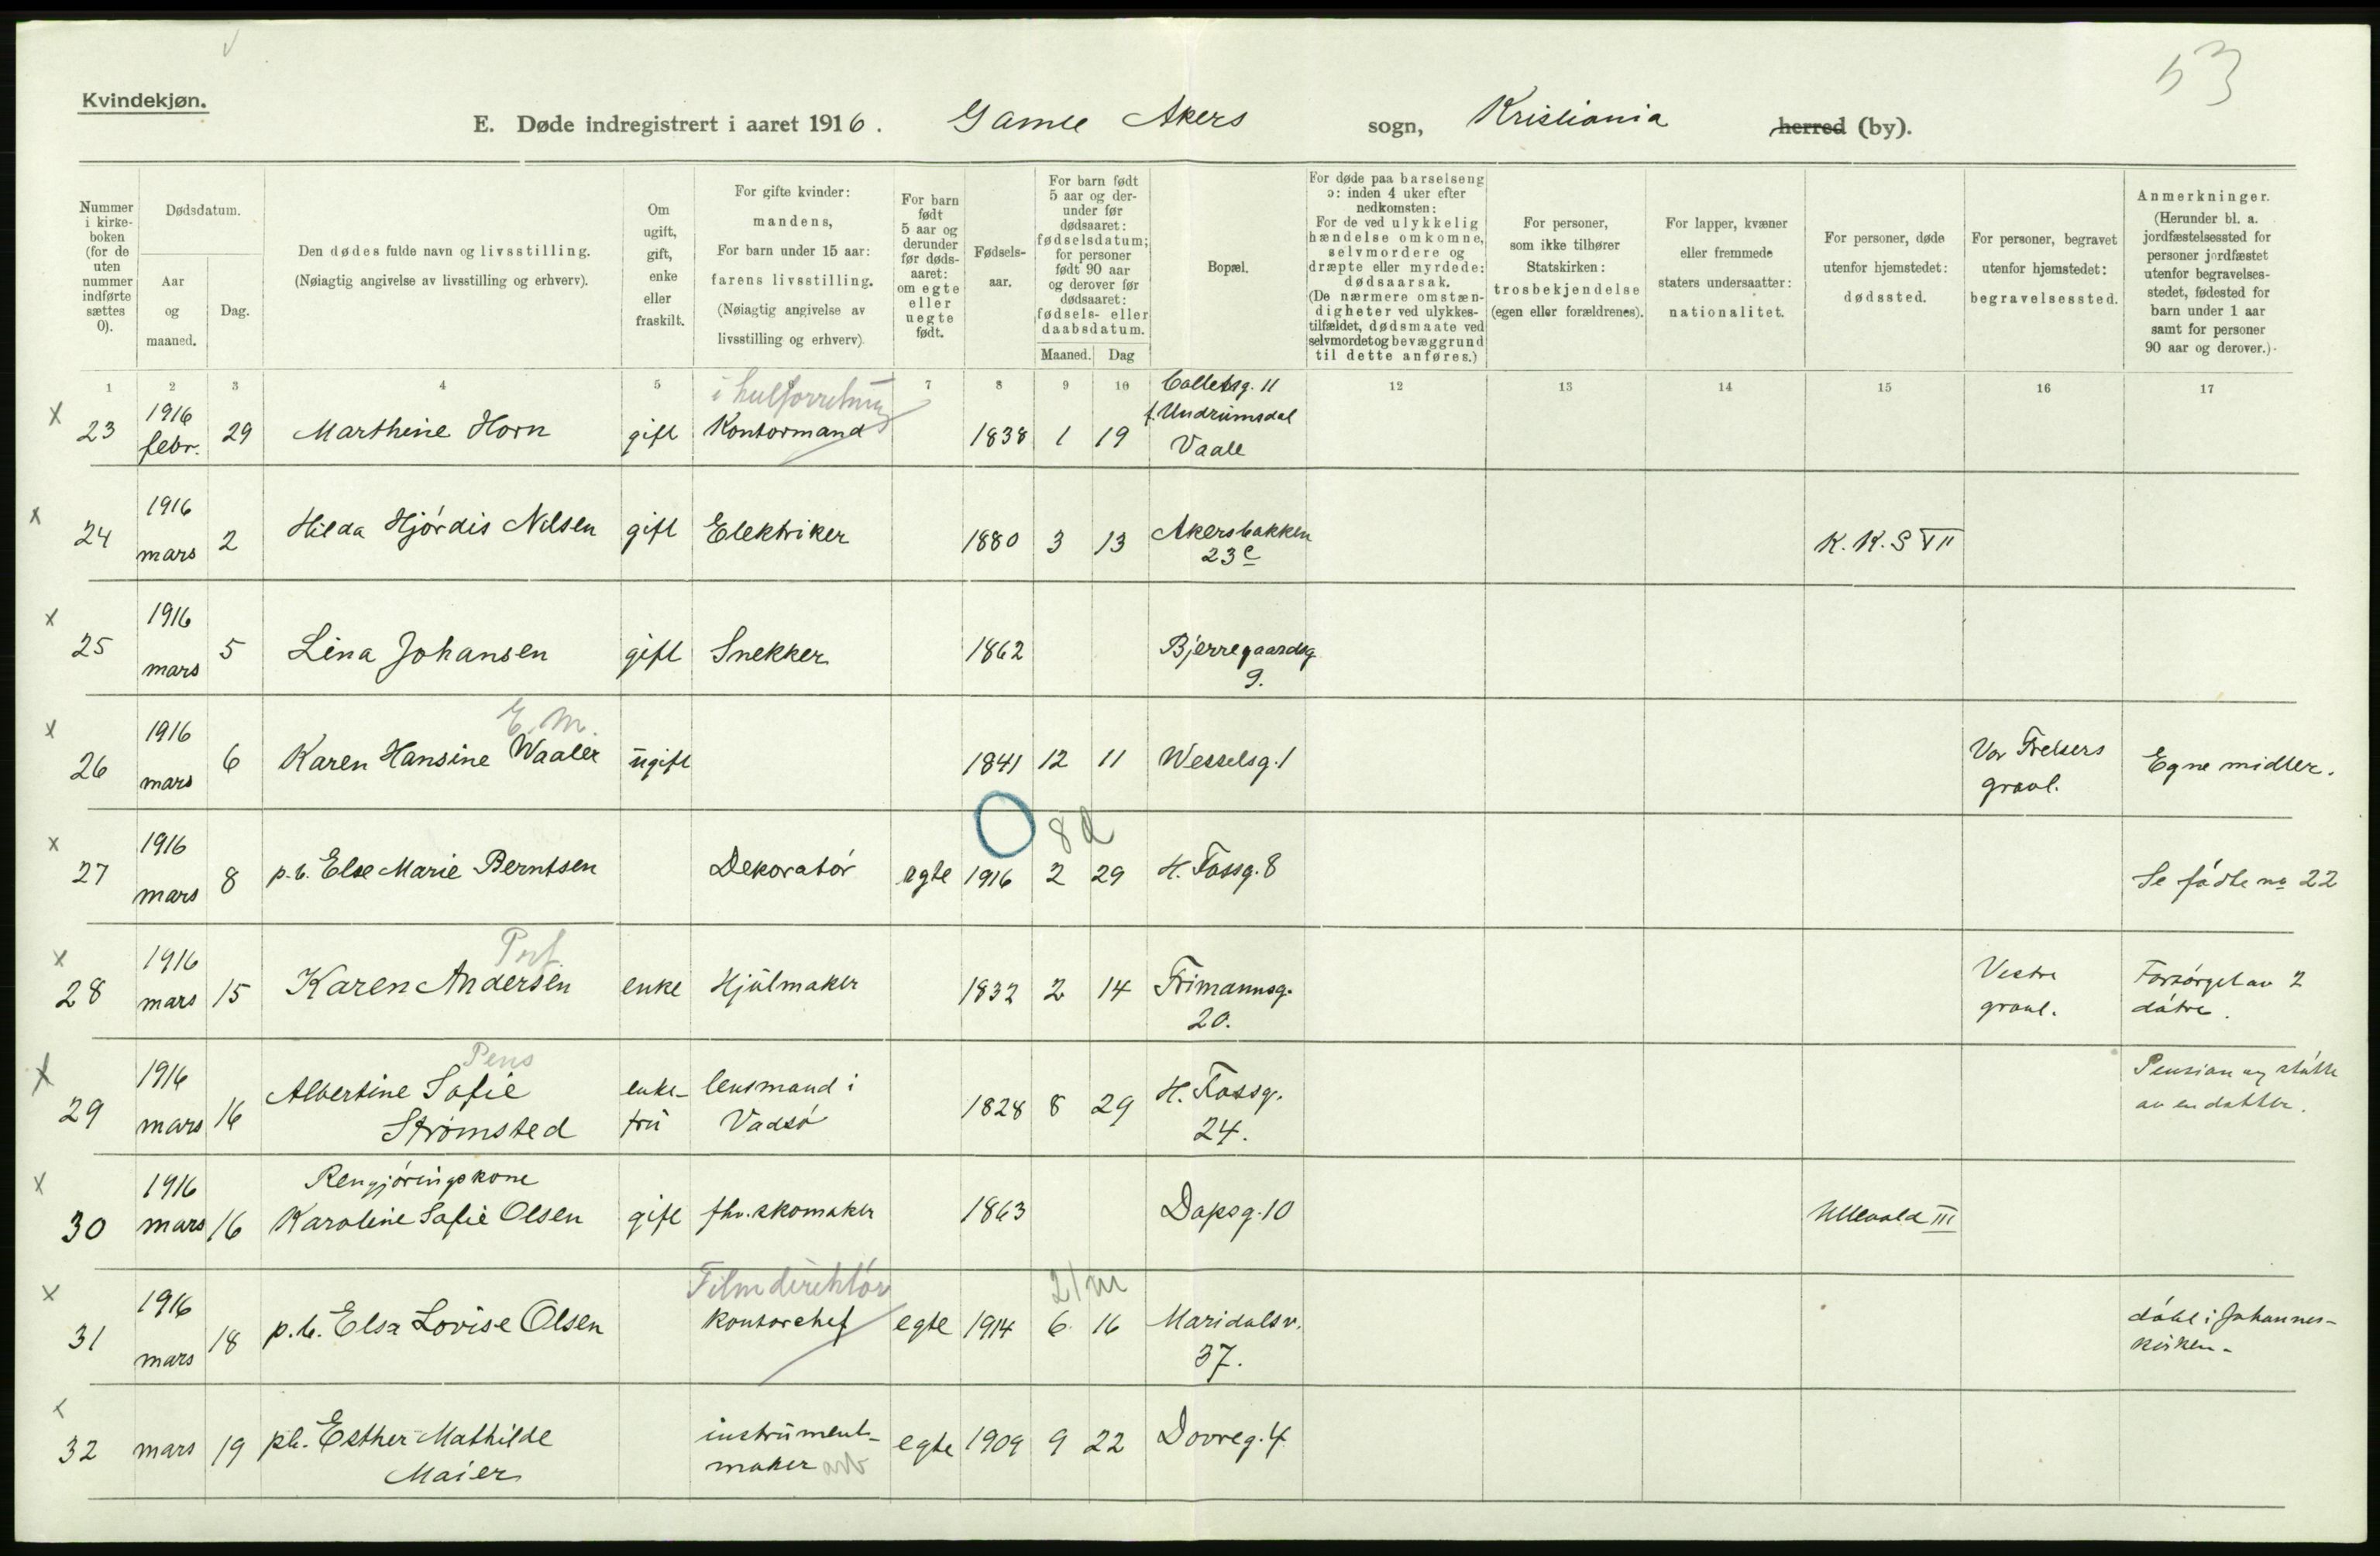 53
Kvindekjøn.
E. Døde indregistrert i aaret 1916. Gamle Akers sogn, Kristiania herred (by).
Nummer i kirke-boken (for de uten nummer indførte sættes 0).
Dødsdatum.
Aar og maaned.
Dag.
Den dødes fulde navn og livsstilling.
(Nøiagtig angivelse av livsstilling og erhverv).
Om ugift, gift, enke eller fraskilt.
For gifte kvinder: mandens,
For barn under 15 aar: farens livsstilling.
(Nøiagtig angivelse av livsstilling og erhverv)
For barn født 5 aar og derunder før døds-aaret: om egte eller uegte født.
Fødsels-aar.
For barn født 5 aar og der-under før dødsaaret: fødselsdatum; for personer født 90 aar og derover før dødsaaret: fødsels- eller daabsdatum.
Maaned. Dag
Bopæl.
For døde paa barselseng ɔ: inden 4 uker efter nedkomsten:
For de ved ulykkelig hændelse omkomne, selvmordere og dræpte eller myrdede: dødsaarsak.
(De nærmere omstæn-digheter ved ulykkes-tilfældet, dødsmaate ved selvmordet og bevæggrund til dette anføres.)
For personer, som ikke tilhører Statskirken: trosbekjendelse (egen eller forældrenes).
For lapper, kvæner eller fremmede staters undersaatter: nationalitet.
For personer, døde utenfor hjemstedet: dødssted.
For personer, begravet utenfor hjemstedet: begravelsessted.
Anmerkninger.
(Herunder bl. a. jordfæstelsessted for personer jordfæstet utenfor begravelses-stedet, fødested for barn under 1 aar samt for personer 90 aar og derover.)
1 2 3 4 5 7 8 9 10 12 13 14 15 16 17
x 23 1916 febr. 29 Marthine Horn gift Kontormand 1838 1 19 f. Undrumsdal Vaale
x 24 1916 mars 2 Hilda Hjørdis Nilsen gift Elektriker 1880 3 13 Akersbakken 23c K. K. S VII
x 25 1916 mars 5 Lina Johansen gift Snekker 1862 Bjerregaardsg 9.
x 26 1916 mars 6 Karen Hansine Waaler E. M. ugift 1841 12 11 Wesselsg. 1 Vor Frelsers gravl. Egne midler.
x 27 1916 mars 8 p.b. Else Marie Berntsen Dekoratør egte 1916 2 29 8 d H. Fossg. 8 Se fødte no 22
x 28 1916 mars 15 Karen Andersen enke Hjulmaker 1832 2 14 Frimannsg. 20. Vestre gravl. Forsørget av 2 døtre.
x 29 1916 mars 16 Pens Albertine Sofie Strømsted enke-fru lensmand i Vadsø 1828 8 29 H. Fossg. 24. Pension og støtte av en datter.
x 30 1916 mars 16 Rengjøringskone Karoline Sofie Olsen gift fhv. skomaker 1863 Dapsg. 10 Ullevaal III
x 31 1916 mars 18 p.b. Elsa Lovise Olsen Filmdirektør Kontorchef egte 1914 6 16 21 m Maridalsv. 37. døbt i Johannes-kirken.
x 32 mars 19 pb. Esther Mathilde Maier instrument-maker arb egte 1909 9 22 Dovreg. 4.